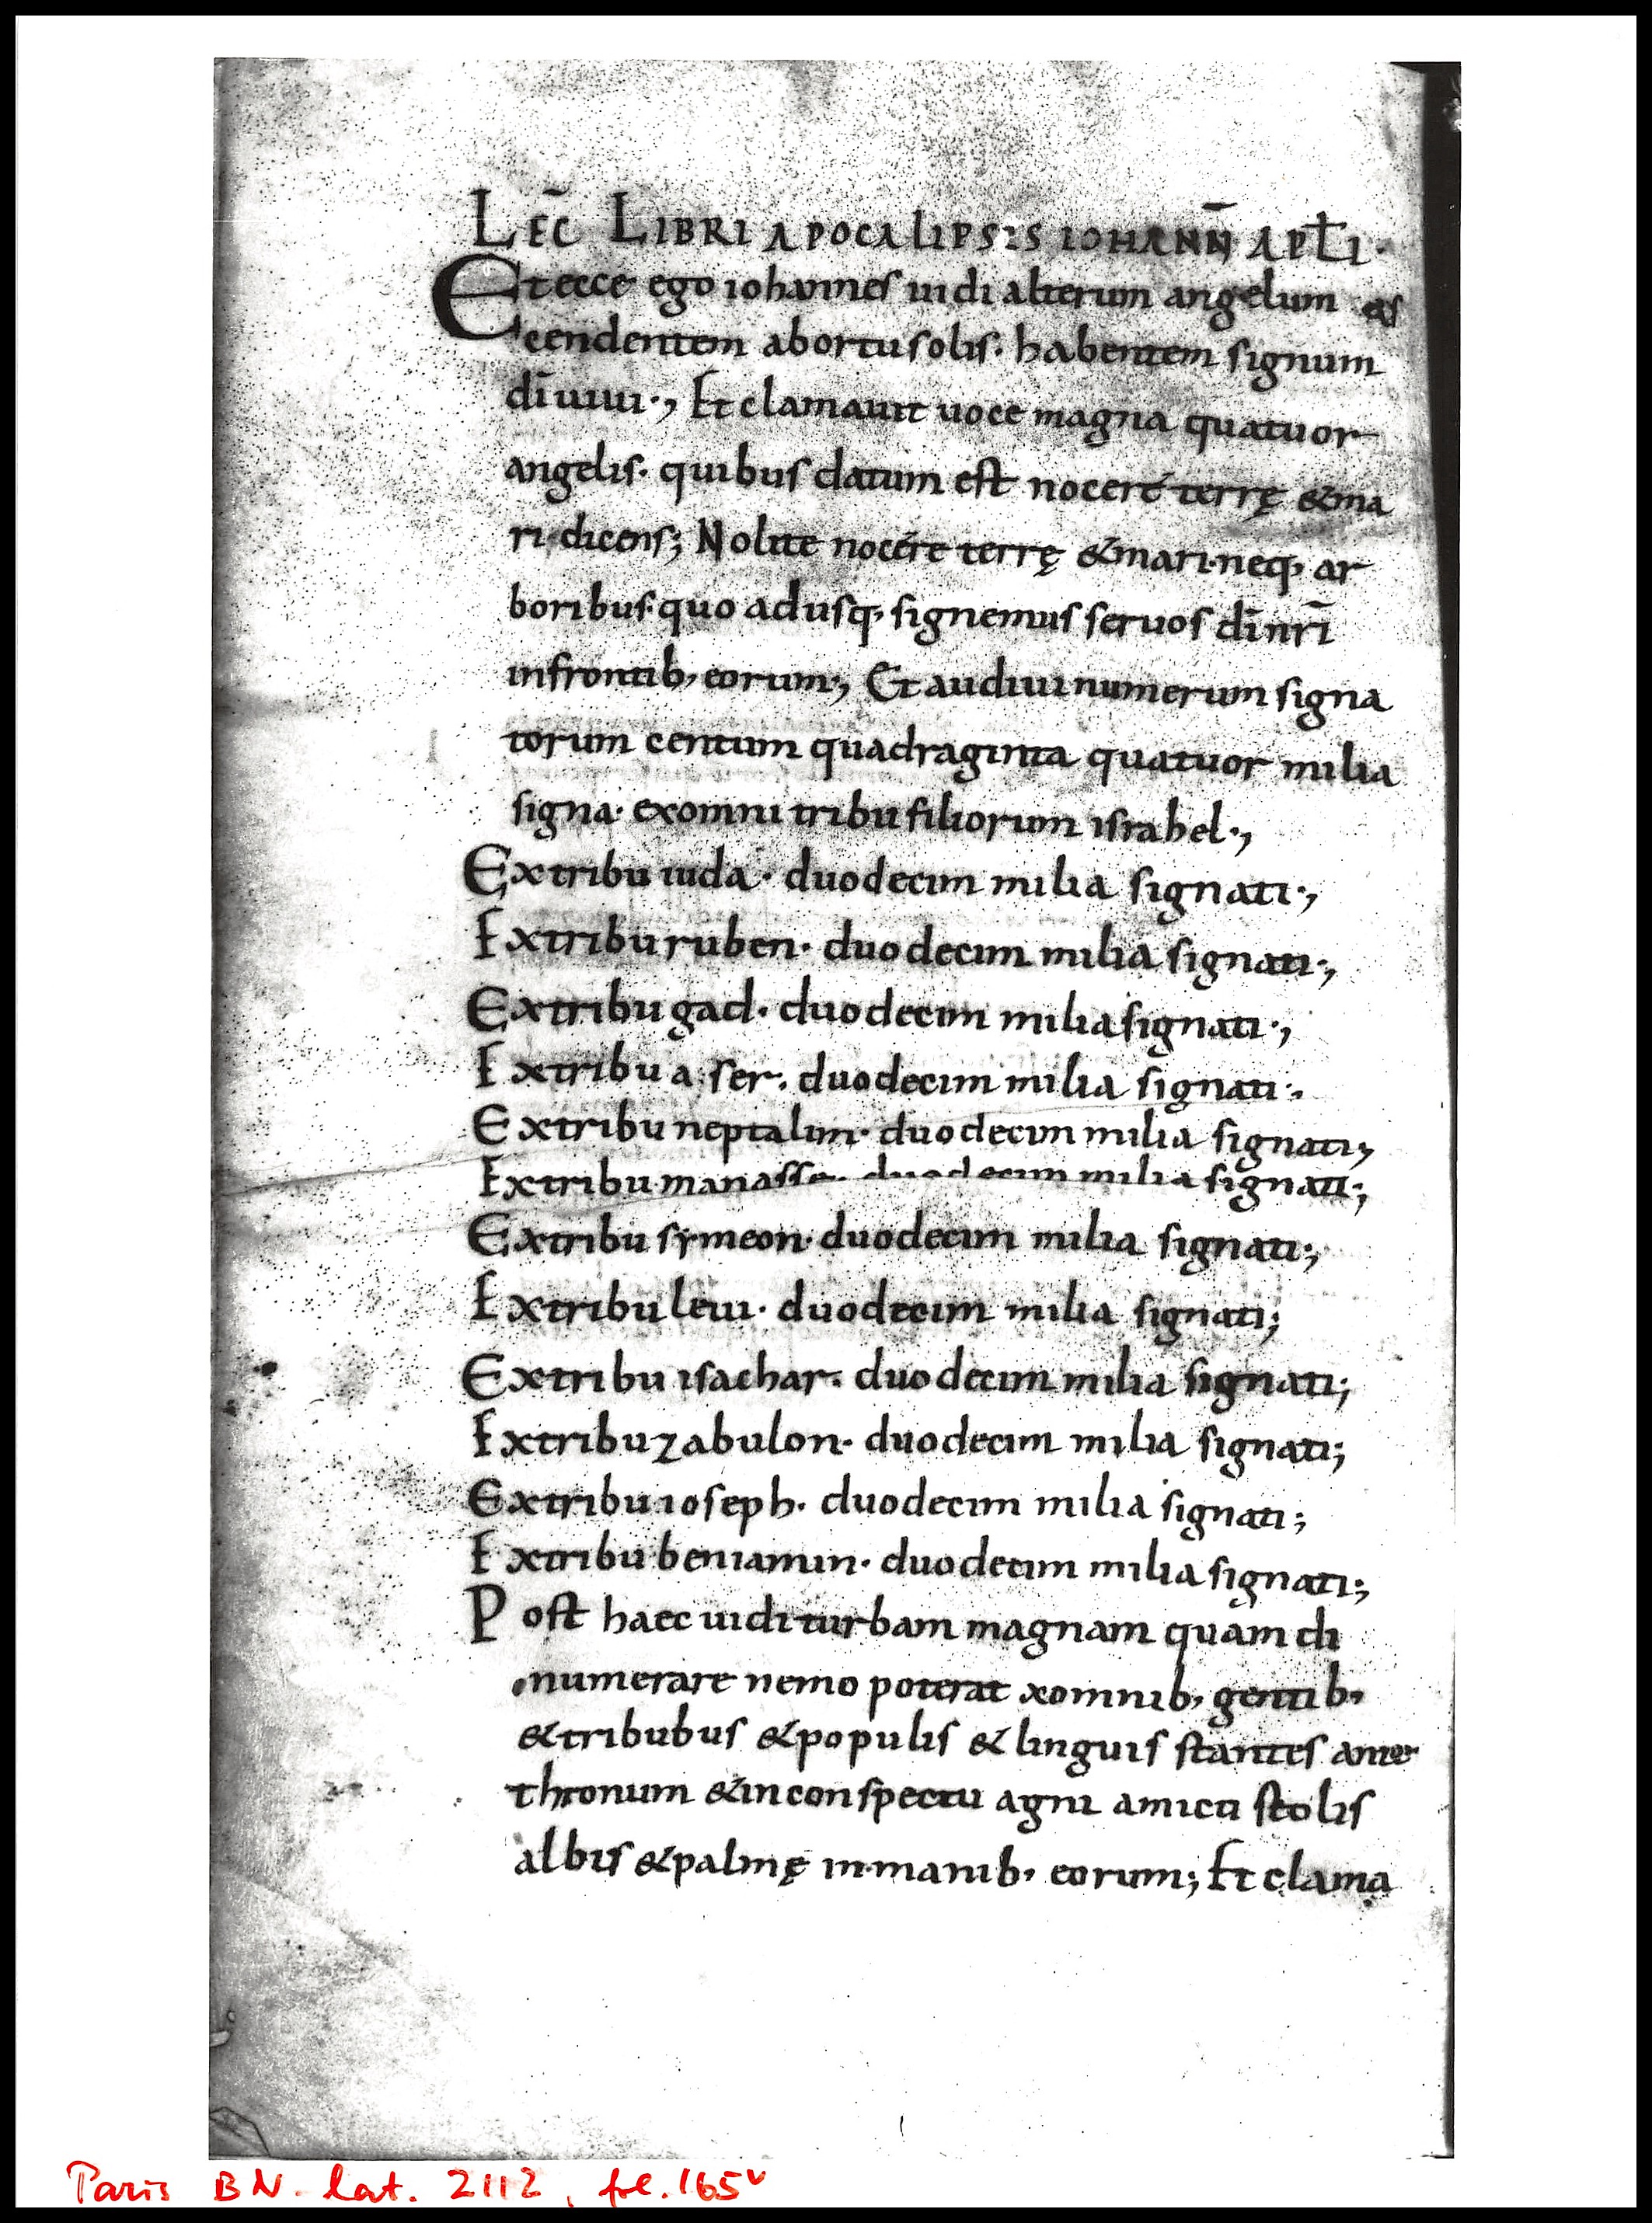 LEC̄ LIBRI APOCALIPSIS IOHANN̄ APƚI·
Et ecce ego iohannes uidi alterum angelum as
cendentem abortu solis· habentem signum
dī uiui·, Et clamauit uoce magna quatuor
angelis· quibus datum est nocere terrę & ma
ri· dicens; Nolite nocére terrę & mari· neq, ar
boribus· quo adusq, signemus seruos dī nr̄i
infrontib, eorum·, Et audiui numerum signa
torum centum quadraginta quatuor milia
signa· exomni tribu filiorum israhel·,
Extribu iuda· duodecim milia signati·,
Extribu ruben· duodecim milia signati·,
Extribu gad· duodecim milia signati·,
Extribu aser· duodecim milia signati·,
Extribu neptalim· duodecim milia signati;
Extribu manasse· duodecim milia signati;
Extribu sẏmeon· duodecim milia signati;
Extribu leui· duodecim milia signati;
Extribu isachar· duodecim milia signati;
Extribu zabulon· duodecim milia signati;
Extribu ioseph· duodecim milia signati;
Extribu beniamin· duodecim milia signati;
Post haec uidi turbam magnam quam di
numerare nemo poterat xomnib, gentib,
& tribubus & populis & linguis stantes ante
thronum & inconspectu agni amicti stolis
albis & palmę inmanib, eorum; Et clama
Paris BN. lat. 2112, fol. 165v